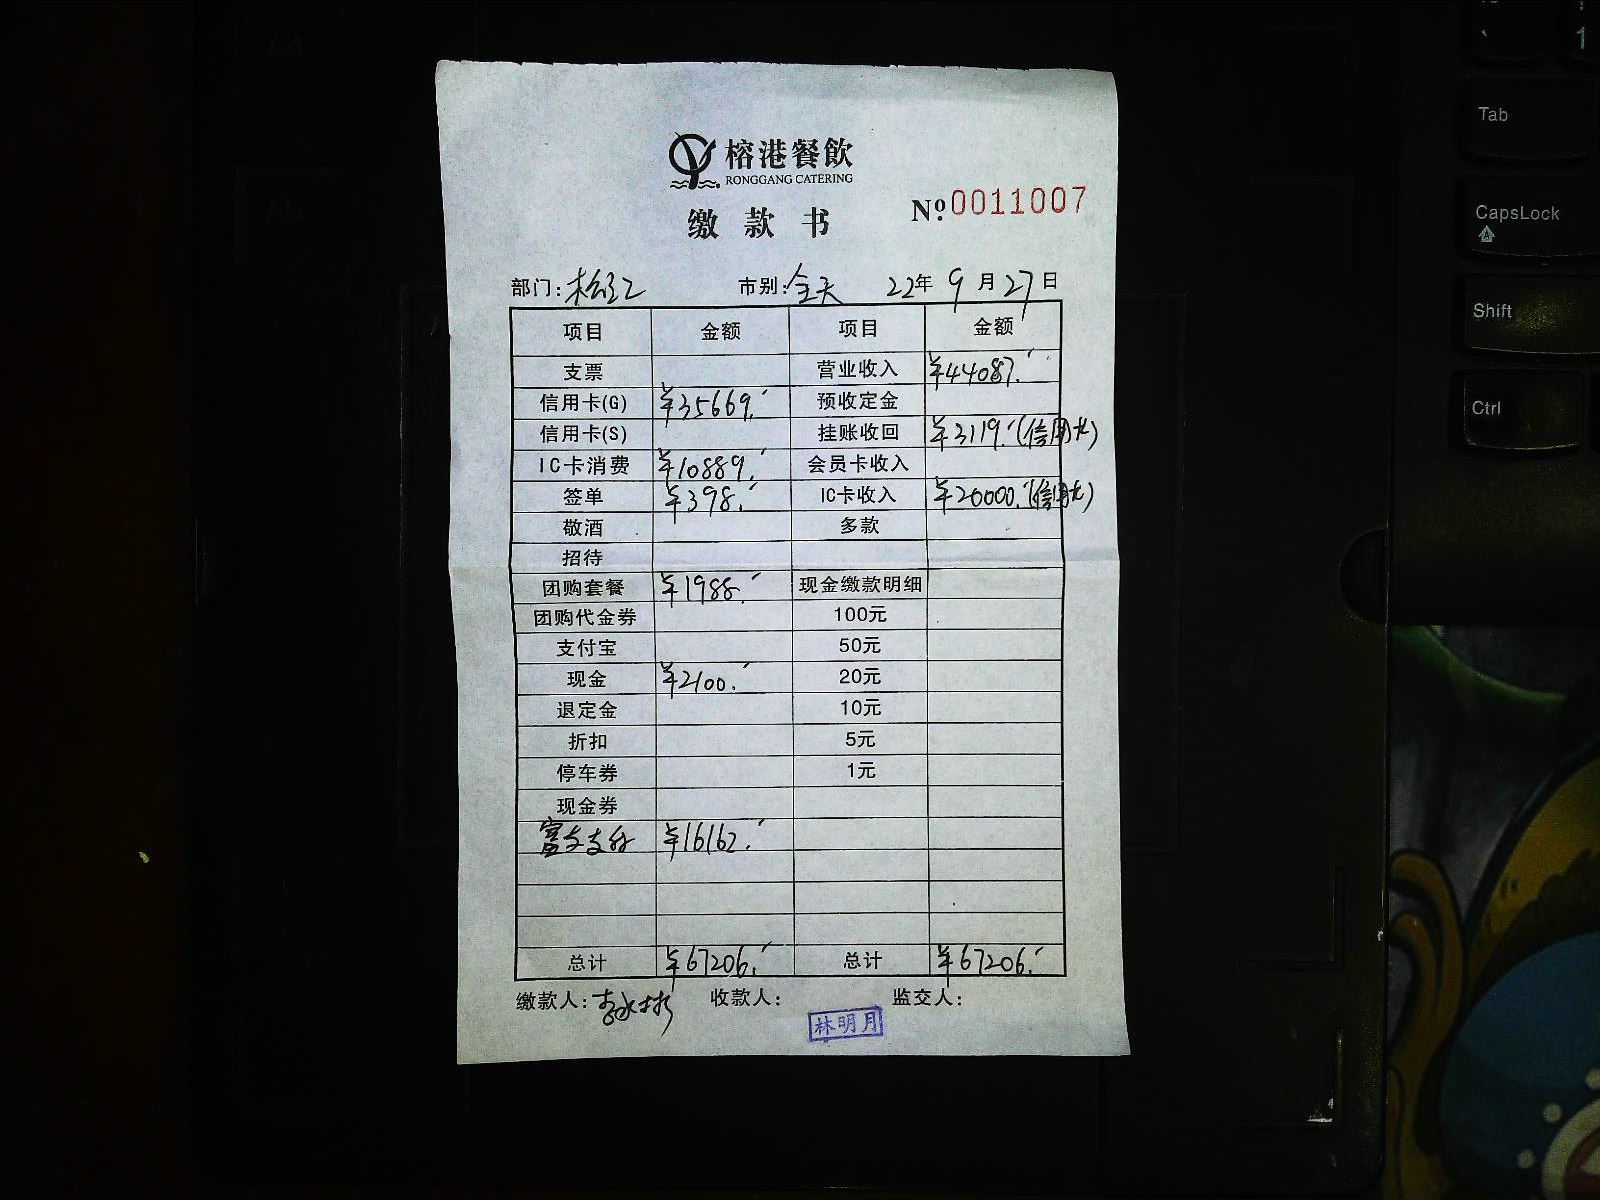 榕港餐飲
RONGGANG CATERING
缴款书 Nº: 0011007
部门: 松江 市别: 全天 22年 9月 27日
项目 金额 项目 金额
支票 营业收入 ¥44087.-
信用卡(G) ¥35669.- 预收定金
信用卡(S) 挂账收回 ¥3119.-(信用卡)
IC卡消费 ¥10889.- 会员卡收入
签单 ¥398.- IC卡收入 ¥20000.-(信用卡)
敬酒 多款
招待
团购套餐 ¥1988.- 现金缴款明细
团购代金券 100元
支付宝 50元
现金 ¥2100.- 20元
退定金 10元
折扣 5元
停车券 1元
现金券
富友支付 ¥16162.-
总计 ¥67206.- 总计 ¥67206.-
缴款人: 收款人: 监交人:
林明月
Tab
CapsLock
Shift
Ctrl
1